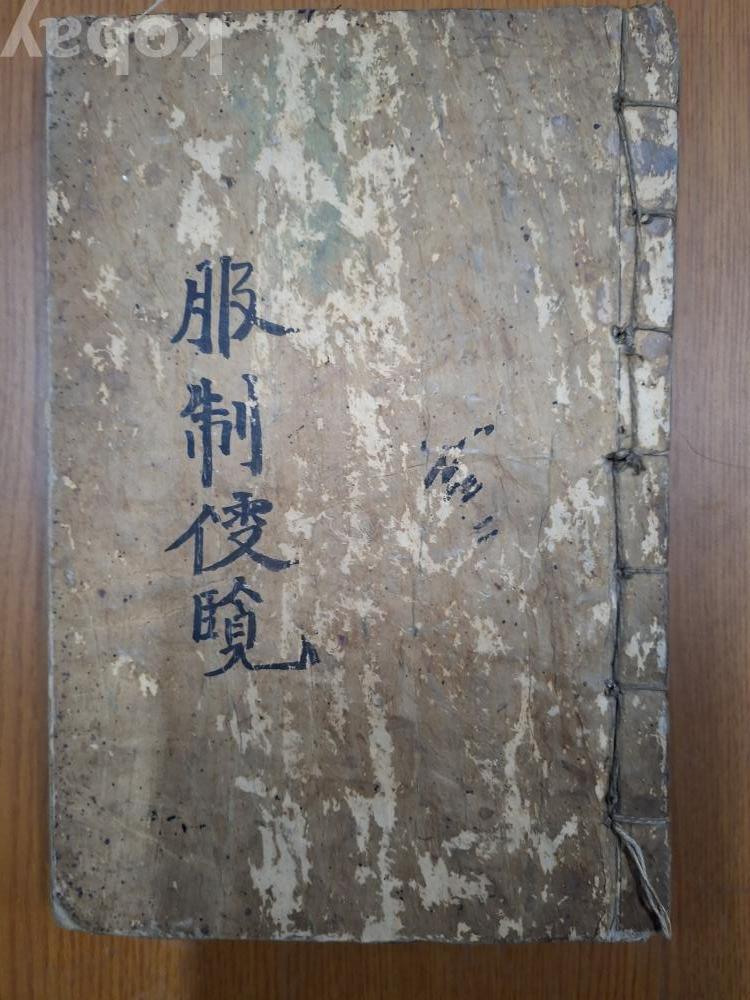 kobay
服制便覧